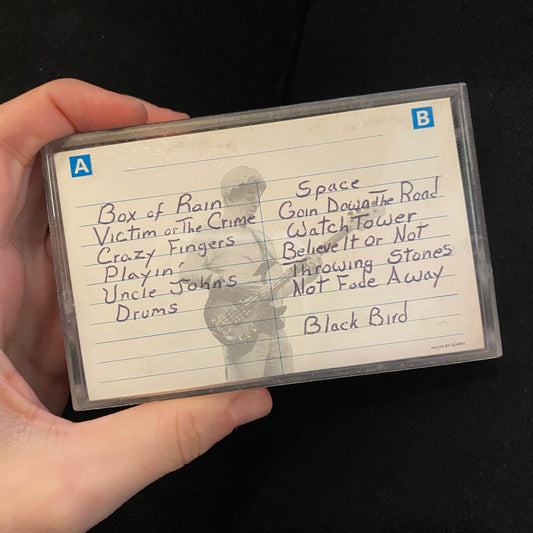 A
B
Box of Rain
Victim or The Crime
Crazy Fingers
Playin
Uncle John's
Drums
Space
Goin Down The Road
Watch Tower
Believe It Or Not
Throwing Stones
Not Fade Away
Black Bird
PHOTO BY